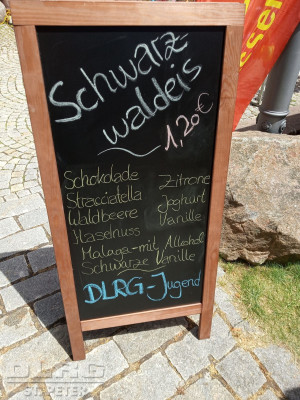 Schwarz-
waldeis
1,20€
Schokolade Zitrone
Stracciatella Joghurt
Waldbeere Vanille
Haselnuss
Malaga-mit Alkohol
Schwarze Vanille
DLRG-Jugend
DLRG
ST. PETER